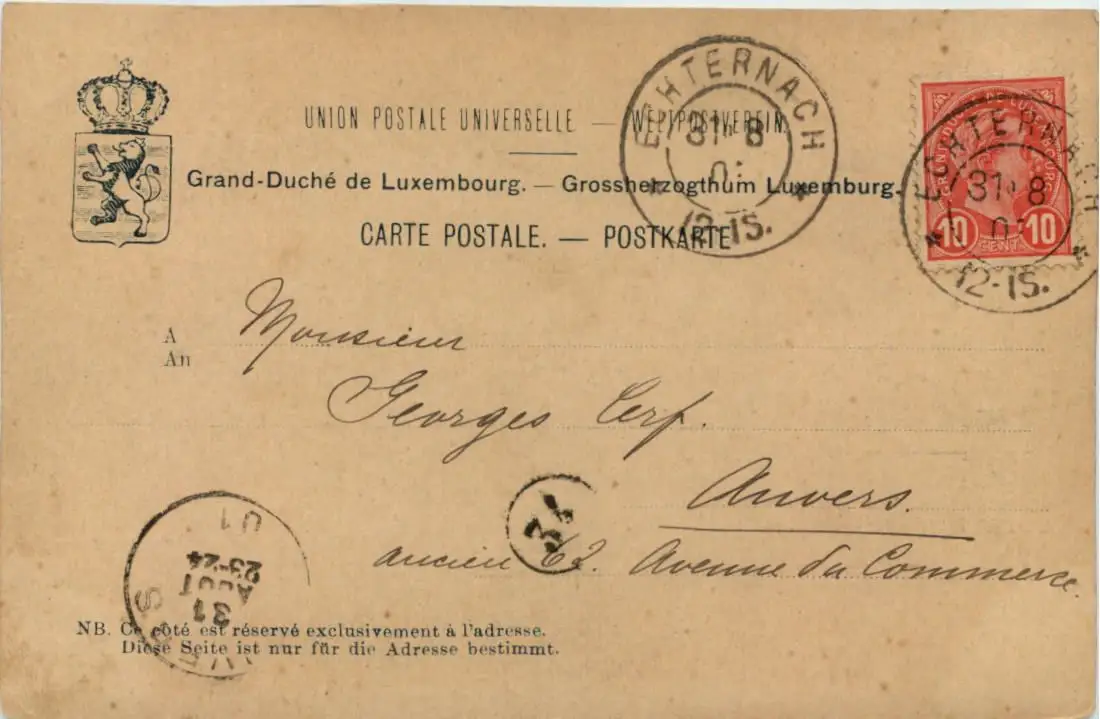 UNION POSTALE UNIVERSELLE — WELTPOSTVEREIN.
Grand-Duché de Luxembourg. — Grossherzogthum Luxemburg.
CARTE POSTALE. — POSTKARTE
ECHTERNACH
31 8
12-1S.
ECHTERNACH
31 8
12-1S.
10 CENT 10
A
An
Monsieur
Georges Cerf.
Anvers.
ancien 62. Avenue du Commerce.
01
23-24
AOUT
31
NB. Ce côté est réservé exclusivement à l'adresse.
Diese Seite ist nur für die Adresse bestimmt.